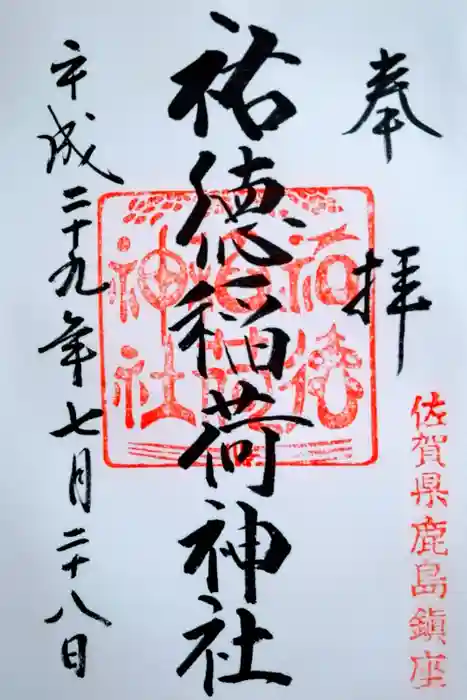 奉拝
佐賀県鹿島鎮座
祐徳稲荷神社
祐徳稲荷神社
平成二十九年七月二十八日